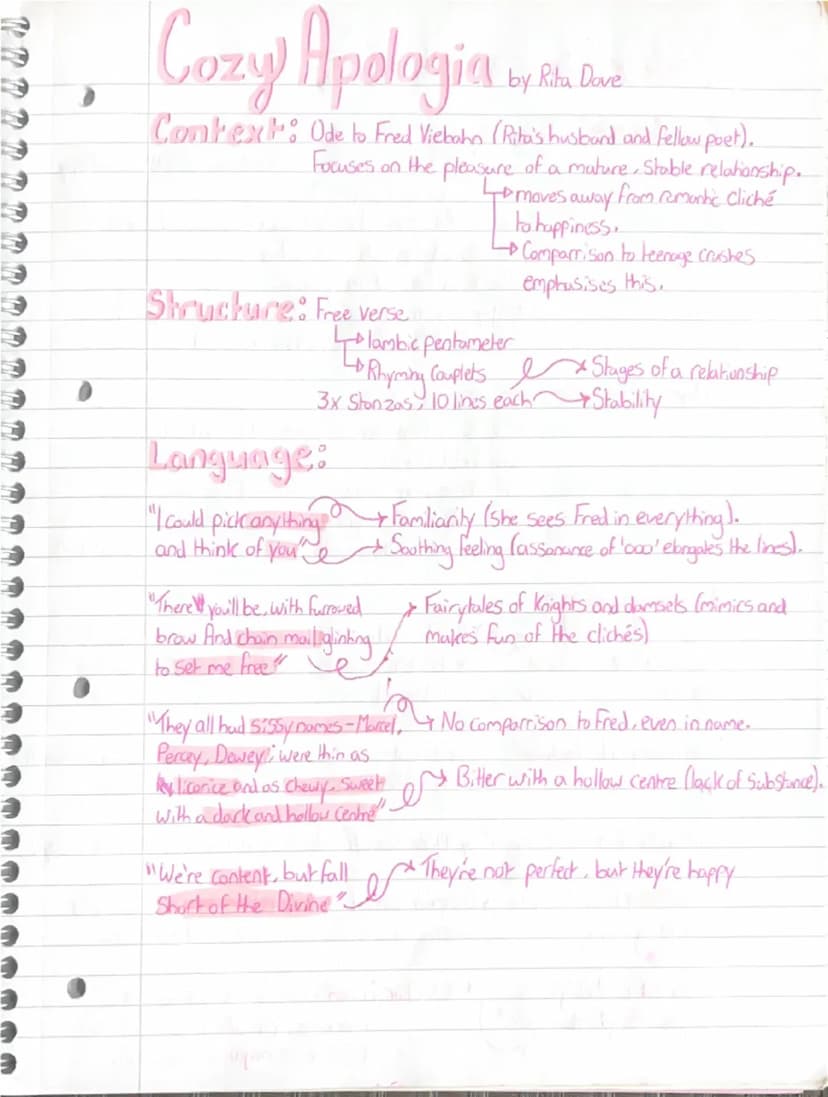 Cozy Apologia by Rita Dove
Context: Ode to Fred Viebahn (Rita's husband and fellow poet).
Focuses on the pleasure of a mature, stable relationship.
moves away from romantic cliché
to happiness.
Comparrison to teenage crushes
emphasises this.
Structure: Free verse
Iambic pentameter
Rhyming Couplets
Stages of a relationship
3x Stanzas, 10 lines each
Stability
Language:
"I could pick anything
and think of you"
Familiarity (she sees Fred in everything).
Soothing feeling (assonance of 'ooo' elongates the lines).
"There you'll be, with furrowed
brow And chain mail glinting
to set me free"
Fairytales of Knights and damsels (mimics and
makes fun of the clichés)
"They all had sissy names - Marcel,
Percey, Dewey; were thin as
licorice and as chewy, sweet
with a dark and hollow centre"
No comparrison to Fred, even in name.
Bitter with a hollow centre (lack of substance).
"We're content, but fall
short of the Divine"
They're not perfect, but they're happy